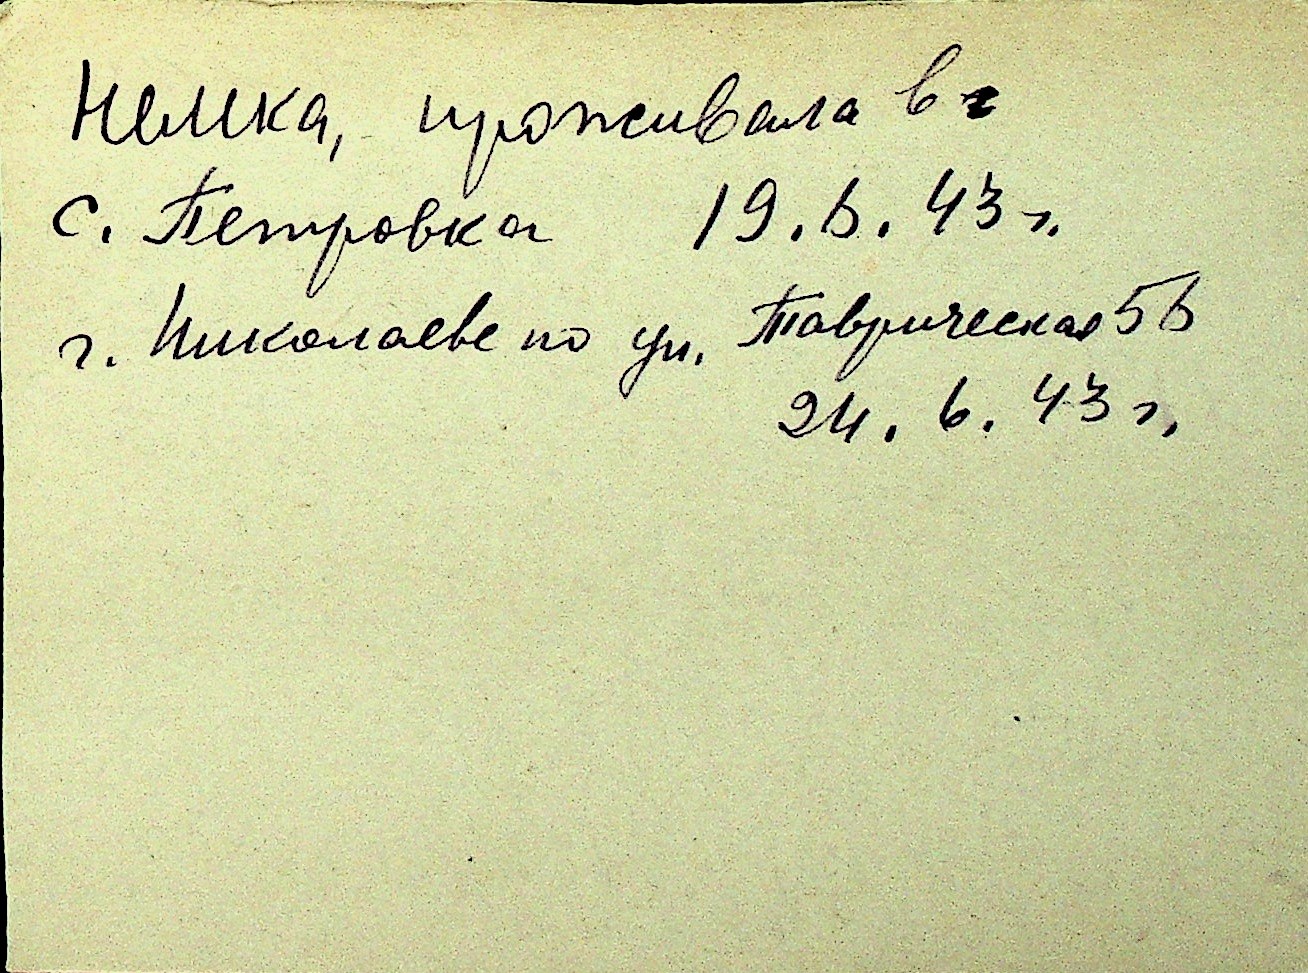 Немка, проживала в
с. Петровка 19.6.43 г.
г. Николаеве по ул. Таврическая 56
24.6.43 г.